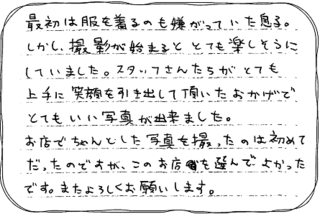 最初は服を着るのも嫌がっていた息子。
しかし、撮影が始まると とても楽しそうに
していました。スタッフさんたちが とても
上手に 笑顔を引き出して頂いたおかげで
とてもいい写真が出来ました。
お店でちゃんとした写真を撮ったのは初めて
だったのですが、このお店を選んでよかった
です。またよろしくお願いします。